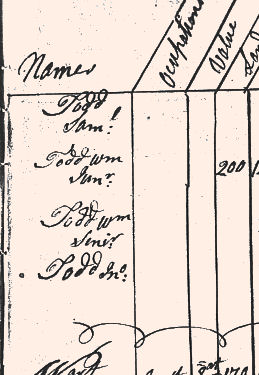 Names Occupations Value
Todd
Sam.l
Todd Wm
Jun.r 200
Todd Wm
Seni.r
Todd Jno.
Ward